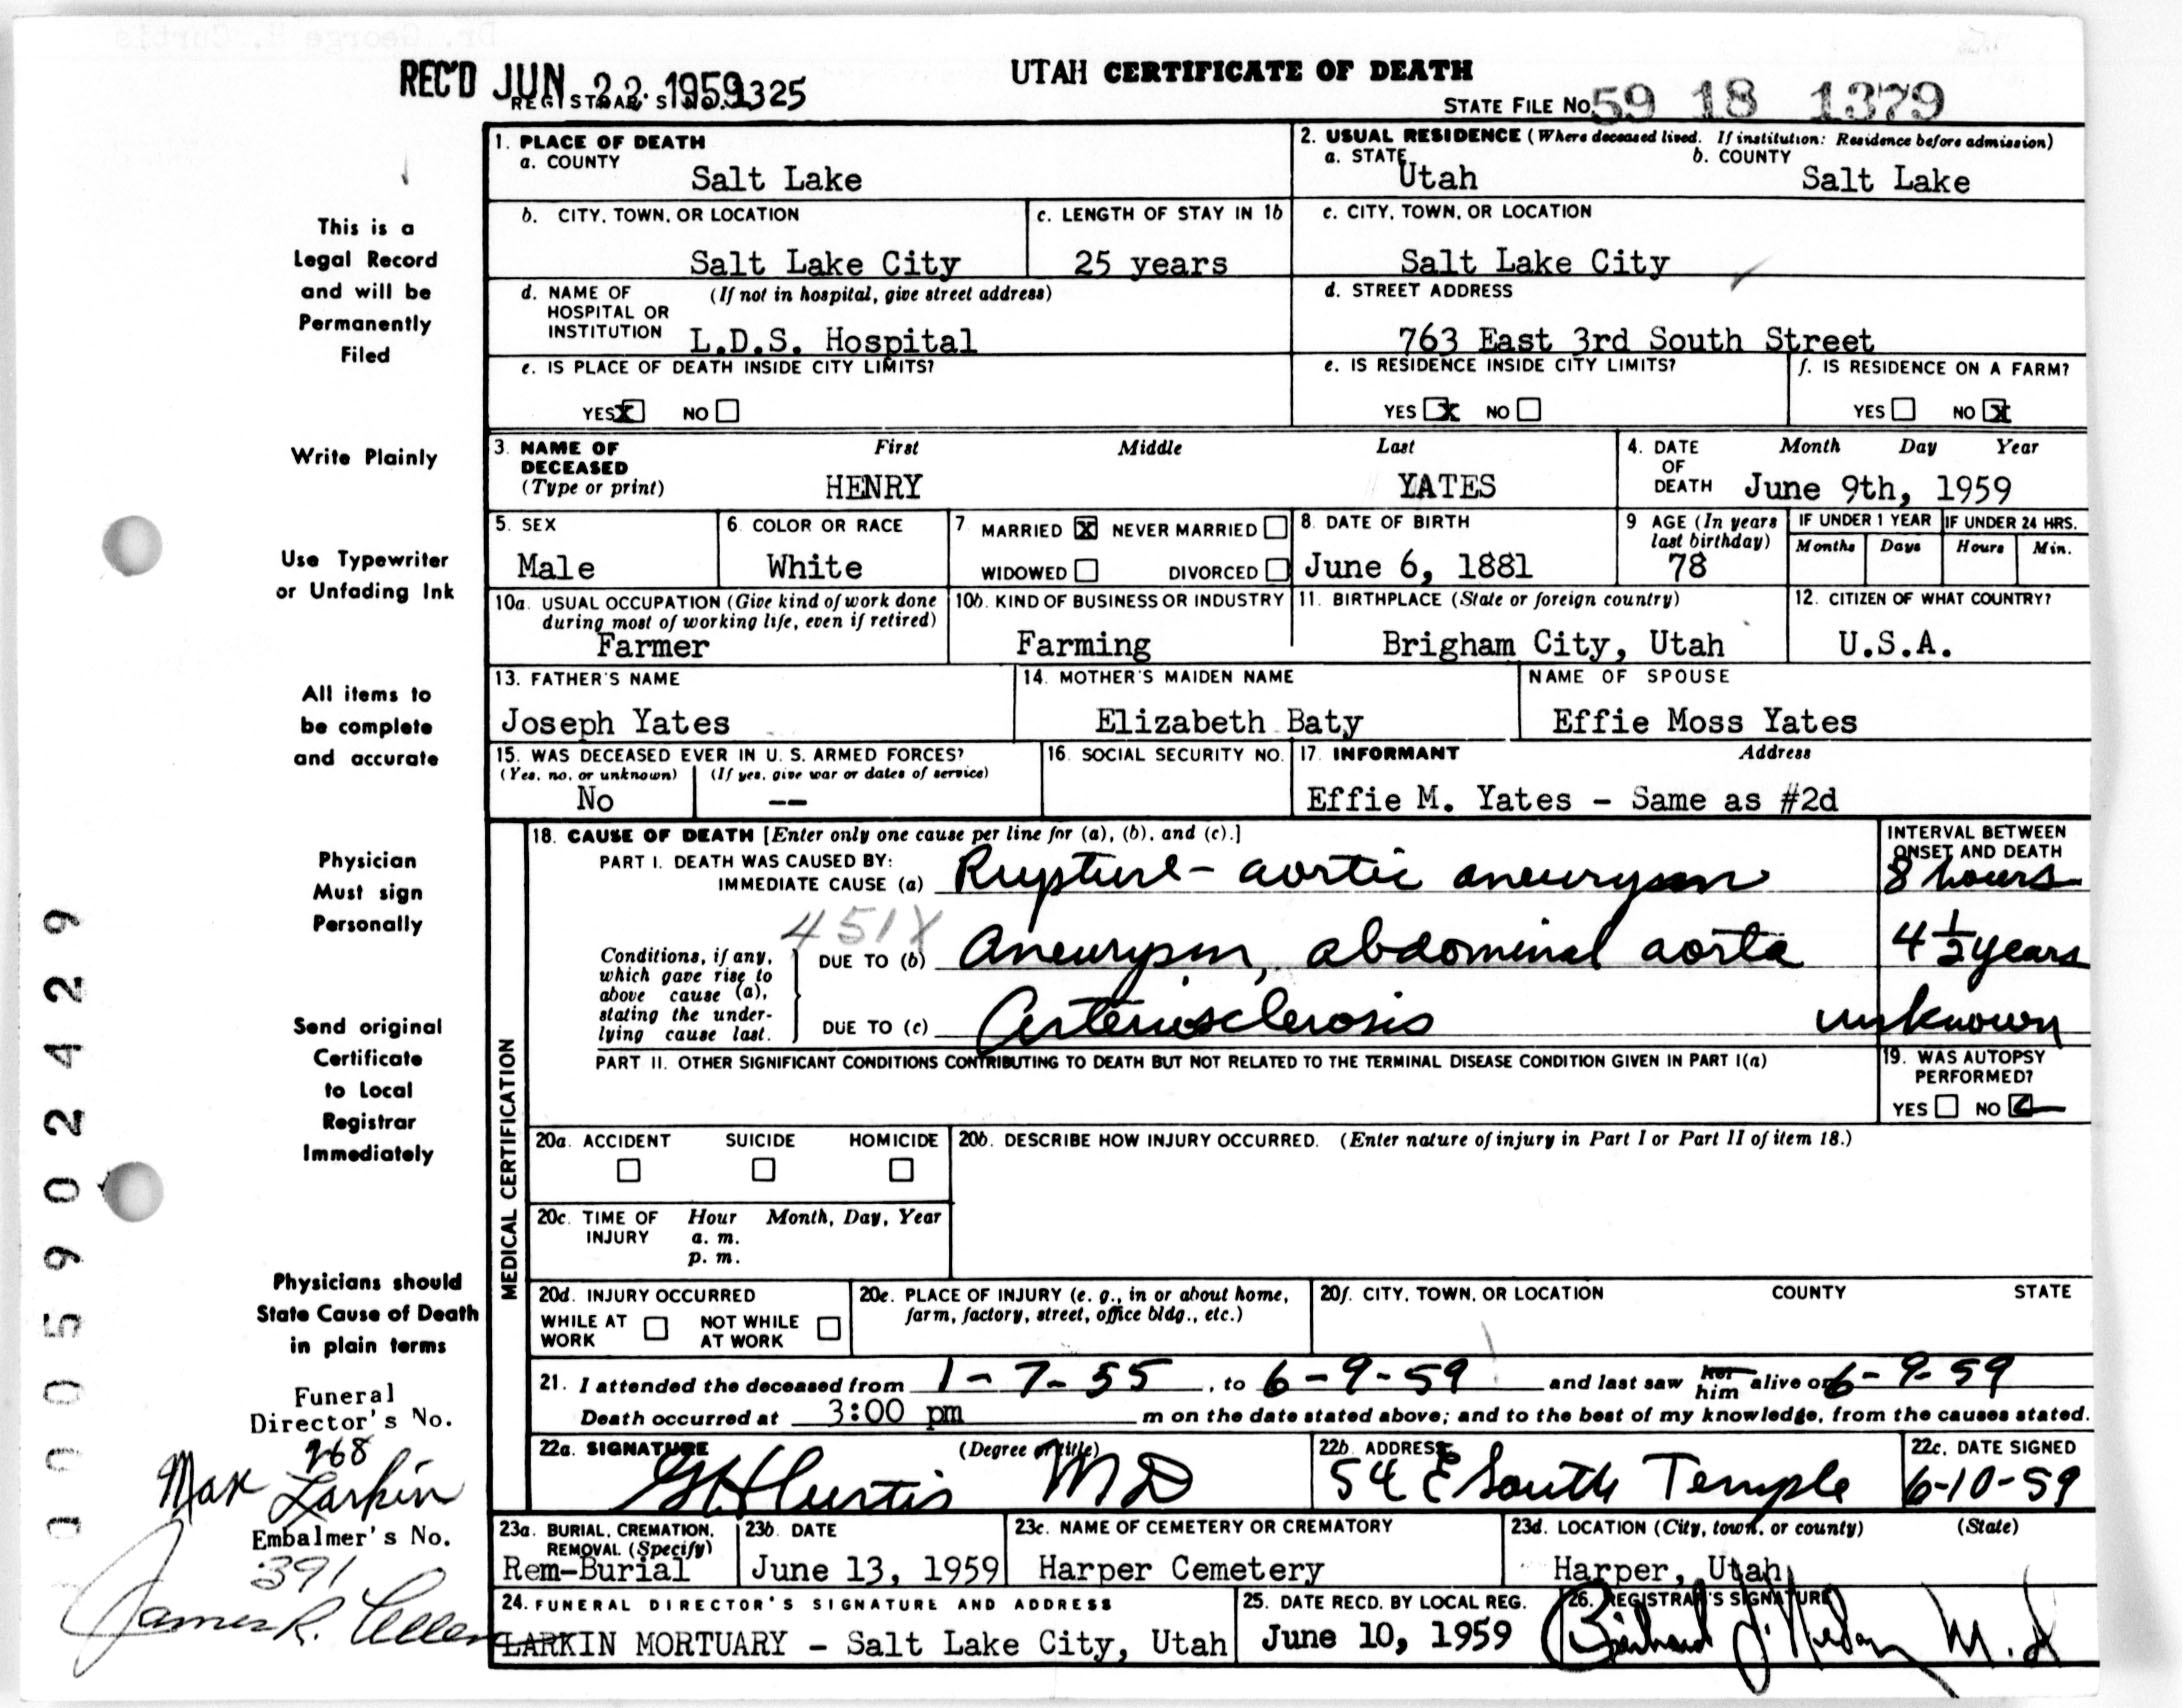 REC'D JUN 22 1959
REGISTRAR'S NO. 1325
UTAH CERTIFICATE OF DEATH
STATE FILE No. 59 18 1379
1. PLACE OF DEATH
a. COUNTY
Salt Lake
2. USUAL RESIDENCE (Where deceased lived. If institution: Residence before admission)
a. STATE Utah
b. COUNTY Salt Lake
b. CITY, TOWN, OR LOCATION
Salt Lake City
c. LENGTH OF STAY IN 1b
25 years
c. CITY, TOWN, OR LOCATION
Salt Lake City
d. NAME OF HOSPITAL OR INSTITUTION (If not in hospital, give street address)
L.D.S. Hospital
d. STREET ADDRESS
763 East 3rd South Street
e. IS PLACE OF DEATH INSIDE CITY LIMITS?
YES X NO
e. IS RESIDENCE INSIDE CITY LIMITS?
YES X NO
f. IS RESIDENCE ON A FARM?
YES NO X
3. NAME OF DECEASED (Type or print)
First Middle Last
HENRY YATES
4. DATE OF DEATH Month Day Year
June 9th, 1959
5. SEX
Male
6. COLOR OR RACE
White
7. MARRIED X NEVER MARRIED
WIDOWED DIVORCED
8. DATE OF BIRTH
June 6, 1881
9 AGE (In years last birthday)
78
IF UNDER 1 YEAR
Months Days
IF UNDER 24 HRS.
Hours Min.
10a. USUAL OCCUPATION (Give kind of work done during most of working life, even if retired)
Farmer
10b. KIND OF BUSINESS OR INDUSTRY
Farming
11. BIRTHPLACE (State or foreign country)
Brigham City, Utah
12. CITIZEN OF WHAT COUNTRY?
U.S.A.
13. FATHER'S NAME
Joseph Yates
14. MOTHER'S MAIDEN NAME
Elizabeth Baty
NAME OF SPOUSE
Effie Moss Yates
15. WAS DECEASED EVER IN U. S. ARMED FORCES?
(Yes, no, or unknown) (If yes, give war or dates of service)
No --
16. SOCIAL SECURITY NO.
17. INFORMANT Address
Effie M. Yates - Same as #2d
MEDICAL CERTIFICATION
18. CAUSE OF DEATH [Enter only one cause per line for (a), (b), and (c).]
INTERVAL BETWEEN ONSET AND DEATH
PART I. DEATH WAS CAUSED BY:
IMMEDIATE CAUSE (a) Rupture - aortic aneurysm 8 hours
451X
Conditions, if any, which gave rise to above cause (a), stating the underlying cause last.
DUE TO (b) Aneurysm, abdominal aorta 4 1/2 years
DUE TO (c) Arteriosclerosis unknown
PART II. OTHER SIGNIFICANT CONDITIONS CONTRIBUTING TO DEATH BUT NOT RELATED TO THE TERMINAL DISEASE CONDITION GIVEN IN PART I(a)
19. WAS AUTOPSY PERFORMED?
YES NO
20a. ACCIDENT SUICIDE HOMICIDE
20b. DESCRIBE HOW INJURY OCCURRED. (Enter nature of injury in Part I or Part II of item 18.)
20c. TIME OF INJURY Hour Month, Day, Year
a. m.
p. m.
20d. INJURY OCCURRED
WHILE AT WORK NOT WHILE AT WORK
20e. PLACE OF INJURY (e. g., in or about home, farm, factory, street, office bldg., etc.)
20f. CITY, TOWN, OR LOCATION COUNTY STATE
21. I attended the deceased from 1-7-55, to 6-9-59 and last saw her him alive on 6-9-59
Death occurred at 3:00 pm m on the date stated above; and to the best of my knowledge, from the causes stated.
22a. SIGNATURE (Degree or title)
G H Curtis MD
22b. ADDRESS
54 E South Temple
22c. DATE SIGNED
6-10-59
23a. BURIAL, CREMATION, REMOVAL (Specify)
Rem-Burial
23b. DATE
June 13, 1959
23c. NAME OF CEMETERY OR CREMATORY
Harper Cemetery
23d. LOCATION (City, town, or county) (State)
Harper, Utah
24. FUNERAL DIRECTOR'S SIGNATURE AND ADDRESS
LARKIN MORTUARY - Salt Lake City, Utah
25. DATE RECD. BY LOCAL REG.
June 10, 1959
26. REGISTRAR'S SIGNATURE
M.D.
This is a
Legal Record
and will be
Permanently
Filed
Write Plainly
Use Typewriter
or Unfading Ink
All items to
be complete
and accurate
Physician
Must sign
Personally
Send original
Certificate
to Local
Registrar
Immediately
Physicians should
State Cause of Death
in plain terms
Funeral
Director's No.
268
Max Larkin
Embalmer's No.
391
James R.
1005902429
Dr. George H. Curtis